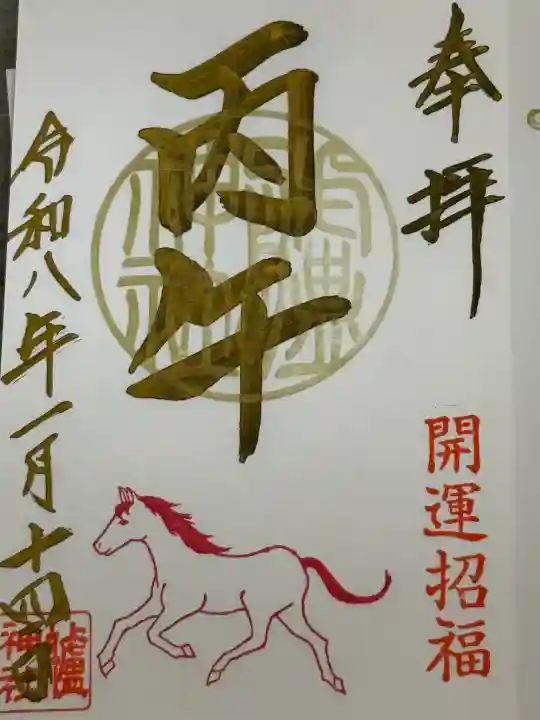 奉拝
開運招福
丙午
令和八年一月十四日
神社